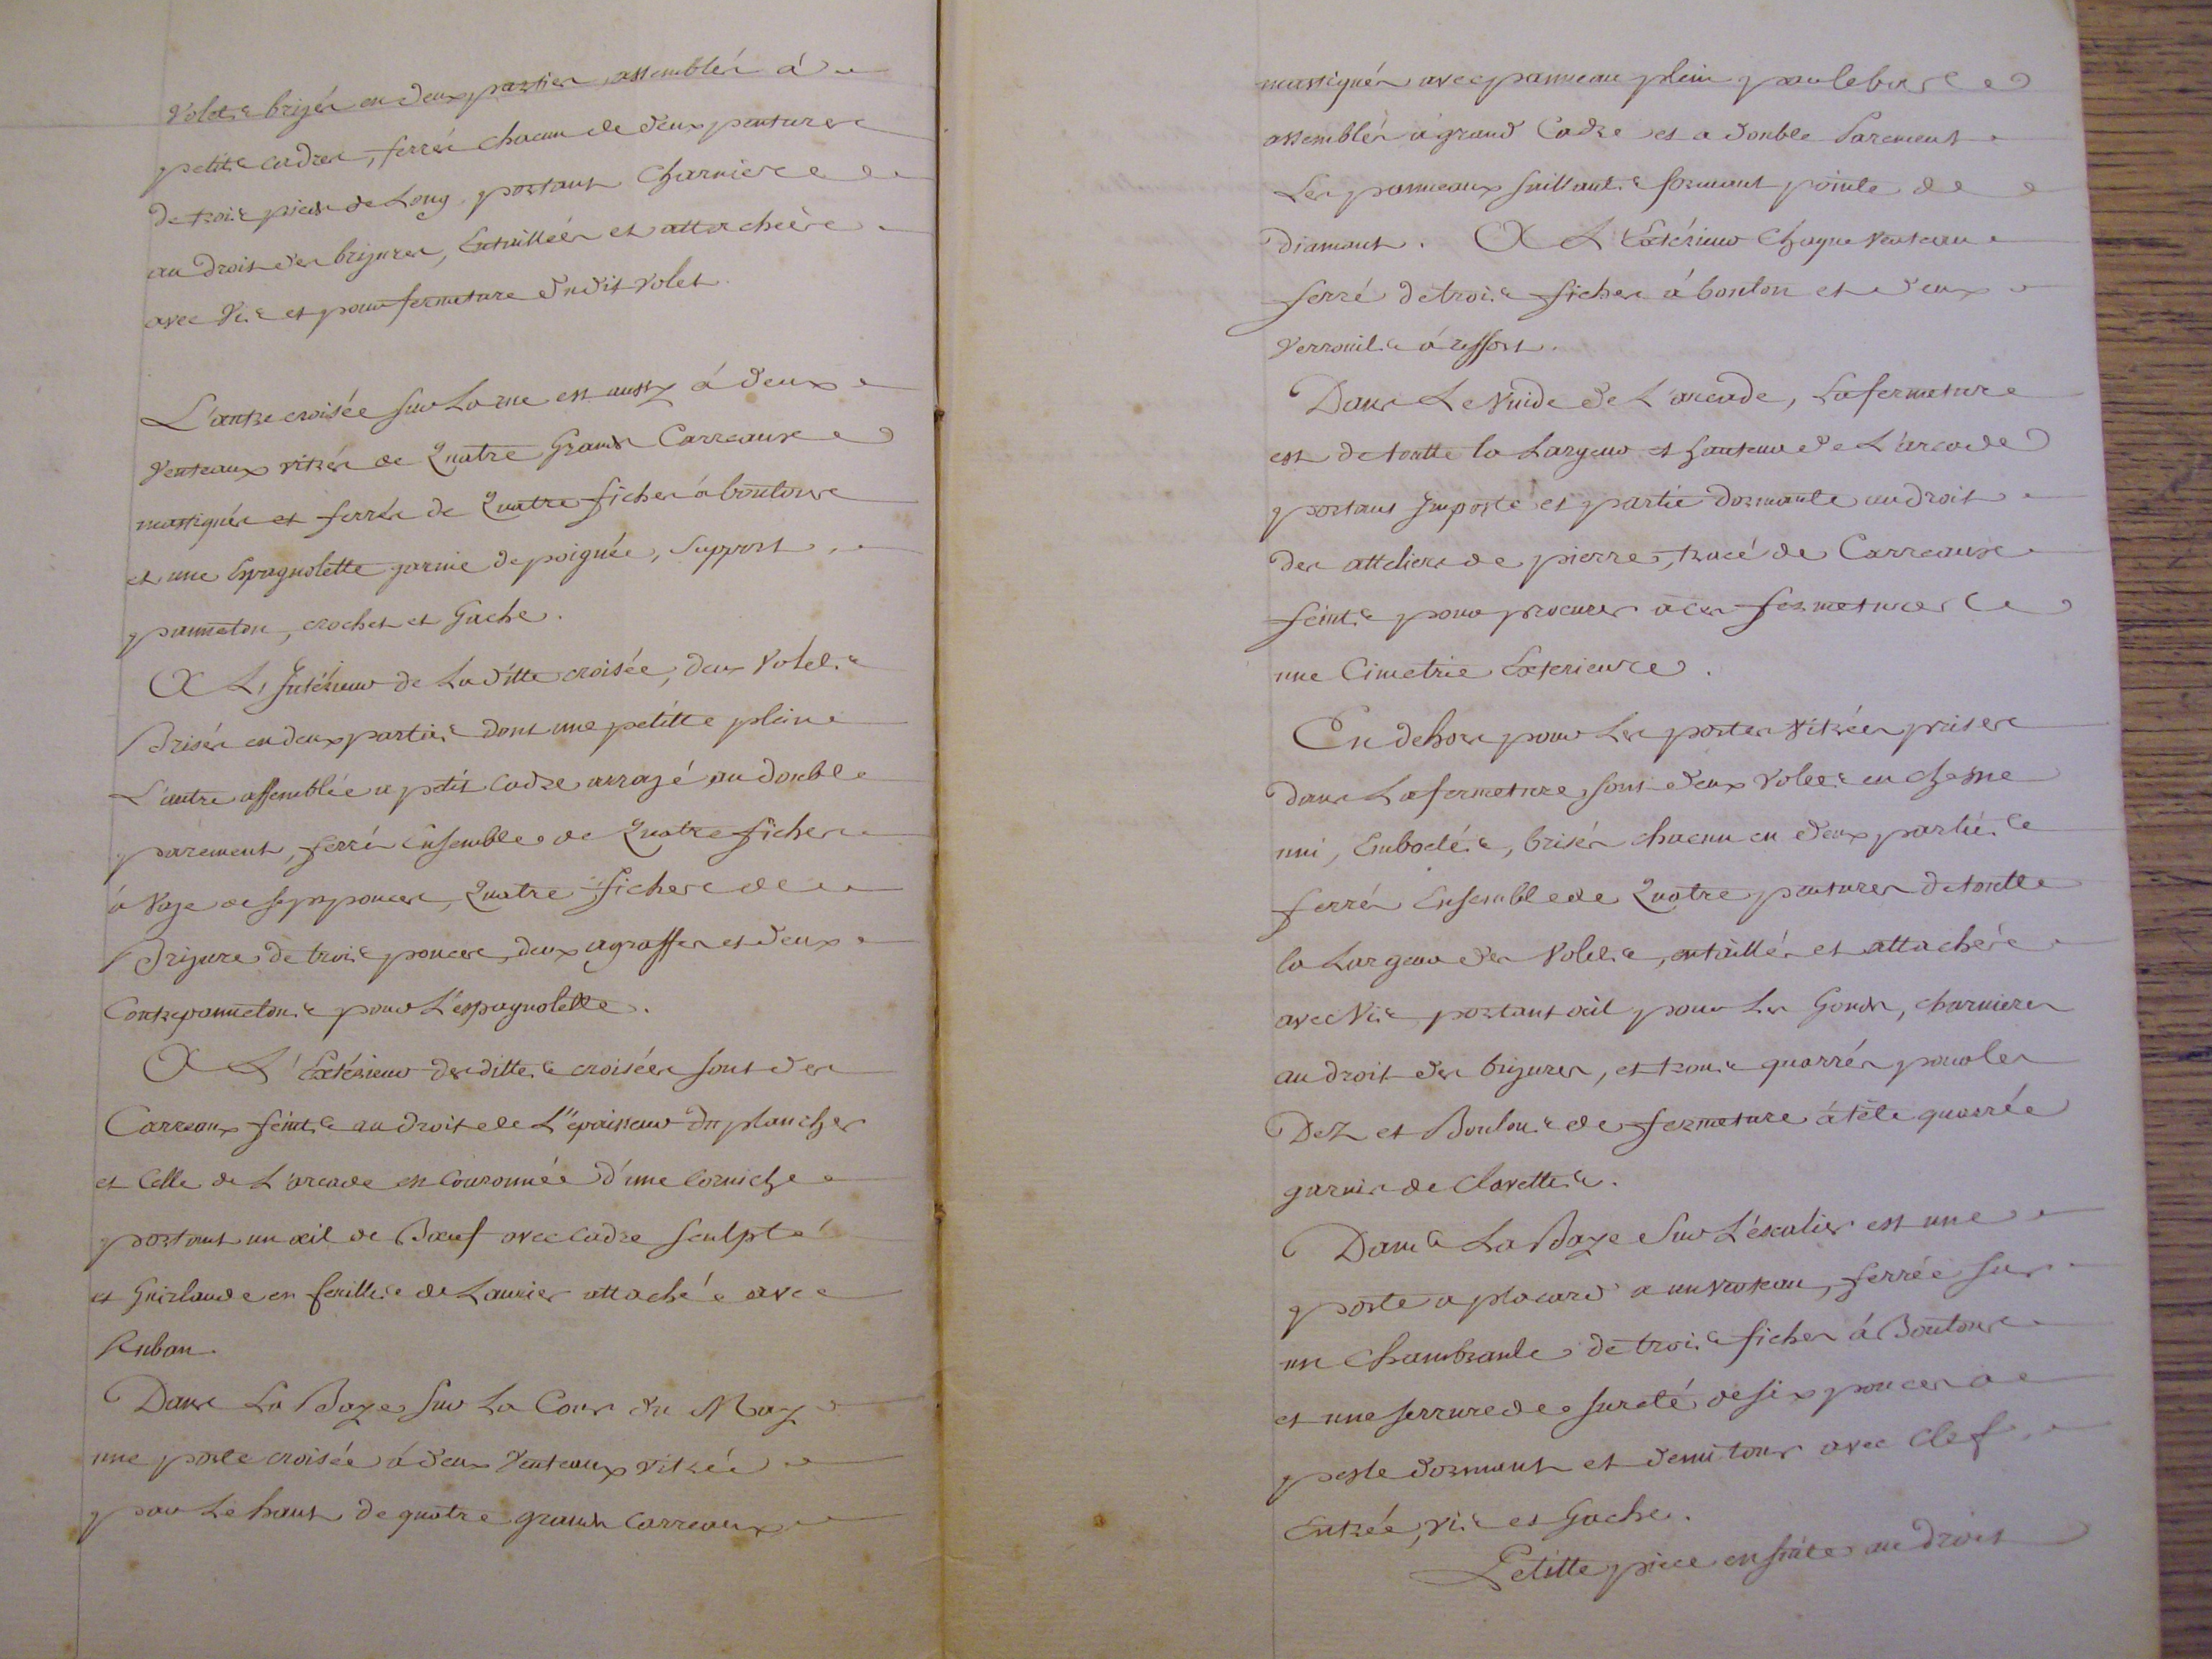 Volets brizés en deux parties, assemblés á
petits cadres, ferrés chacun de deux pentures
de trois pieds de Long, portant Charnieres
au droit des brizures, Entaillées et attachées
avec Vis et pour fermeture dudit Volet.
L'autre croisée sur La rue est aussy á deux
Venteaux vitrés de Quatre Grands Carreaux
mastiqués et ferrés de Quatre fiches á boutons
et une Espagnolette garnie de poignée, Support,
panneton, crochet et Gache.
A L'Intérieur de La ditte croisée, deux Volets
Brisés en deux parties dont une petitte pleine
L'autre assemblée a petit Cadre arrazé au double
parement, ferrés Ensemble de Quatre fiches
á Vaze de sept pouces, Quatre fiches de
Brizure de trois pouces, deux agraffes et deux
Contrepannetons pour L'espagnolette.
A L'Extérieur desdittes croisées sont des
Carreaux feints au droit de L'épaisseur du plancher
et Celle de L'arcade est Couronnée d'une Corniche
portant un œil de Bœuf avec Cadre Sculpté
et Guirlande en feuilles de Laurier attachée avec
Ruban.
Dans La Baye Sur La Cour du May
une porte croisée á deux Venteaux vitrée
par Le haut de quatre grands Carreaux
mastiqués avec panneau plein par le bas
assemblés á grand Cadre et a double Parement
Les panneaux saillants formant pointe de
Diamant. A L'Extérieur Chaque Venteau
ferré de trois fiches á bouton et deux
Verrouils á ressort.
Dans Le Vuide de L'arcade, La fermeture
est de toutte la Largeur et hauteur de L'arcade
portant Imposte et partie dormante au droit
des atteliers de pierre, tracé de Carreaux
feints pour procurer a ces fermetures
une Cimetrie Exterieure.
En dehors pour Les portes Vitrées prises
dans La fermeture, sont deux Volets en chesne
uni, Emboetés, brisés chacun en deux parties
ferrés Ensemble de Quatre pentures de toutte
la Largeur des Volets, entaillés et attachés
avec Vis portant œil pour Les Gonds, charnieres
au droit des brizures, et trous quarrés pour les
Dez et Boulons de fermeture á tête quarrée
garnis de Clavettes.
Dans La Baye Sur L'escalier est une
porte a placard a un Venteau, ferrée sur
un Chambranle de trois fiches á Boutons
et une serrure de sureté de six pouces a
pesle dormant et demi tour avec Clef,
Entrée, vis et Gache.
Petitte piece en suite au droit